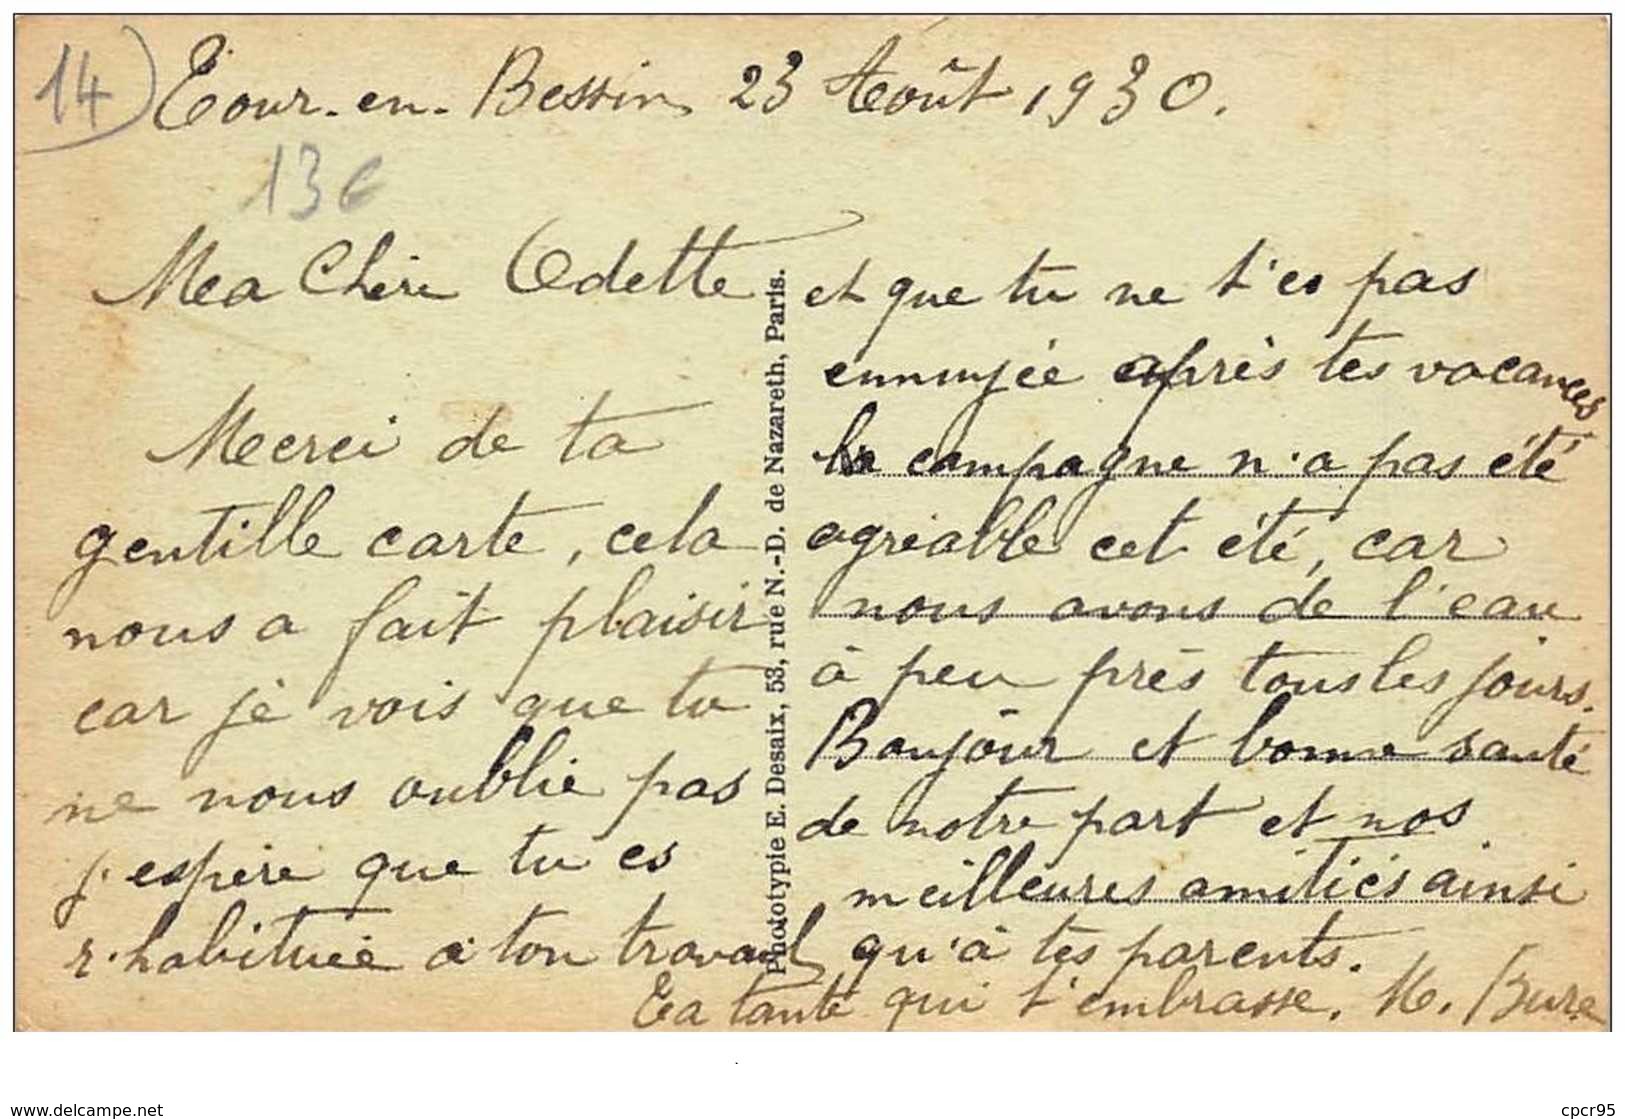 14) Tour-en-Bessin 23 Août 1930.
13€
Ma Chère Odette
Merci de ta
gentille carte, cela
nous a fait plaisir
car je vois que tu
ne nous oublie pas
j'espère que tu es
r'habituée à ton travail
et que tu ne t'es pas
ennuyée après tes vacances
la campagne n'a pas été
agréable cet été, car
nous avons de l'eau
à peu près tous les jours.
Bonjour et bonne santé
de notre part et nos
meilleures amitiés ainsi
qu'à tes parents.
Ta tante qui t'embrasse. M. Bure
Phototypie E. Desaix, 53, rue N.-D. de Nazareth, Paris.
www.delcampe.net
cpcr95